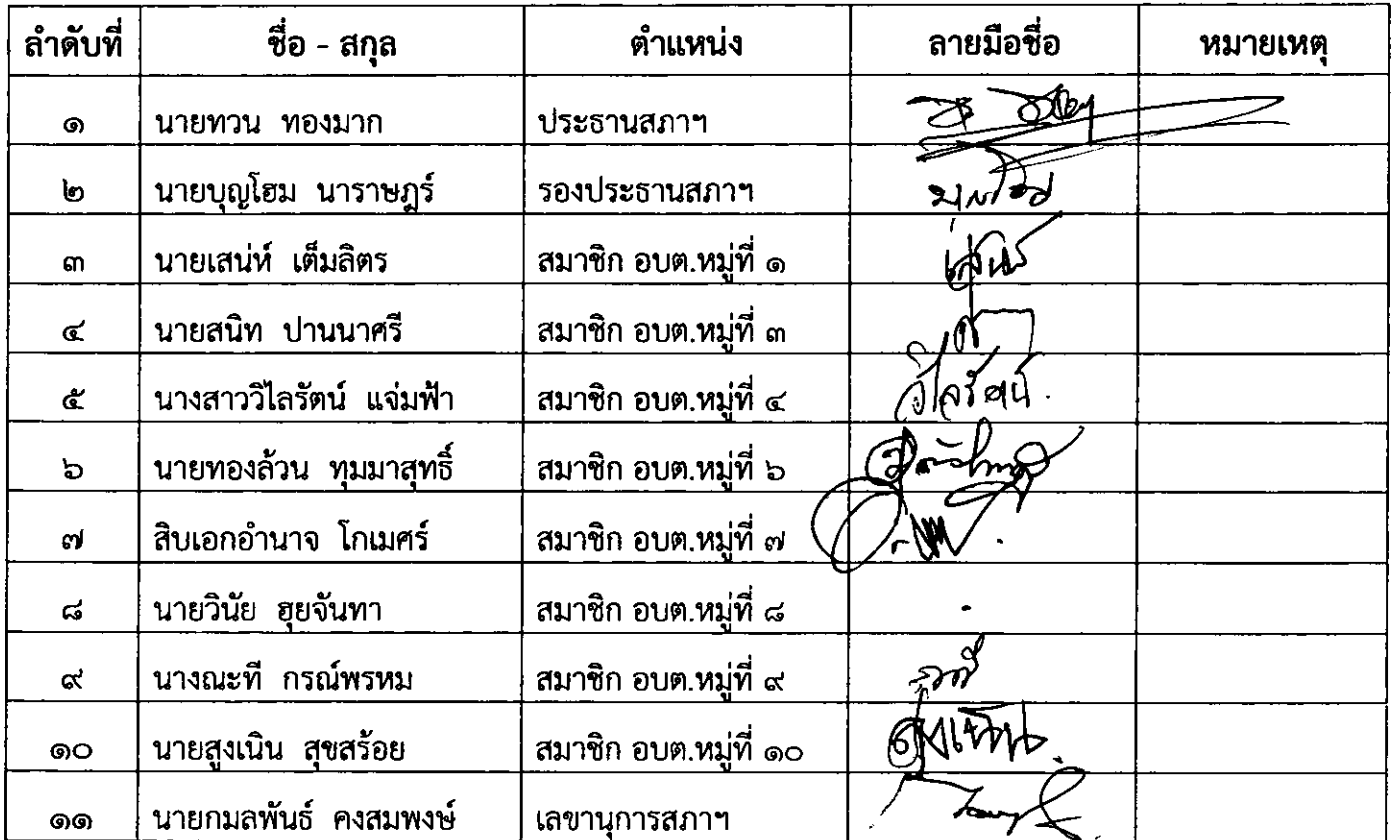 ลำดับที่ ชื่อ - สกุล ตำแหน่ง ลายมือชื่อ หมายเหตุ
๑ นายทวน ทองมาก ประธานสภาฯ
๒ นายบุญโฮม นาราษฎร์ รองประธานสภาฯ
๓ นายเสน่ห์ เต็มลิตร สมาชิก อบต.หมู่ที่ ๑ เสน่ห์
๔ นายสนิท ปานนาศรี สมาชิก อบต.หมู่ที่ ๓
๕ นางสาววิไลรัตน์ แจ่มฟ้า สมาชิก อบต.หมู่ที่ ๔ วิไลรัตน์
๖ นายทองล้วน ทุมมาสุทธิ์ สมาชิก อบต.หมู่ที่ ๖
๗ สิบเอกอำนาจ โกเมศร์ สมาชิก อบต.หมู่ที่ ๗
๘ นายวินัย ฮุยจันทา สมาชิก อบต.หมู่ที่ ๘
๙ นางณะที กรณ์พรหม สมาชิก อบต.หมู่ที่ ๙
๑๐ นายสูงเนิน สุขสร้อย สมาชิก อบต.หมู่ที่ ๑๐
๑๑ นายกมลพันธ์ คงสมพงษ์ เลขานุการสภาฯ